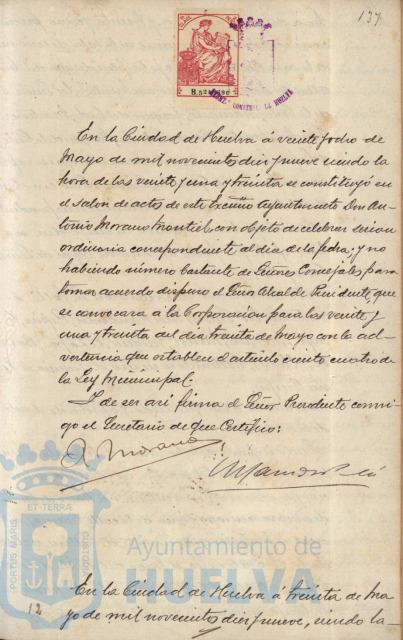 137
En la Ciudad de Huelva á veinte y ocho de
Mayo de mil novecientos diez y nueve siendo la
hora de las veinte y una y treinta se constituyó en
el salon de actos de este Excmo Ayuntamiento Don An-
tonio Moreno Montiel con objeto de celebrar sesion
ordinaria correspondiente al dia de la fecha; y no
habiendo número bastante de Señores Concejales para
tomar acuerdo dispuso el Señor Alcalde Presidente que
se convocara á la Corporación para las veinte y
una y treinta del dia treinta de Mayo con la ad-
vertencia que establece el articulo ciento cuatro de
la Ley Municipal.
I de ser asi firma el Señor Presidente conmi-
go el Secretario de que Certifico:
A. Moreno
PORTUS MARIS ET TERRÆ CUSTODIA
Ayuntamiento de
HUELVA
12
En la Ciudad de Huelva á treinta de Ma-
yo de mil novecientos diez y nueve, siendo la-